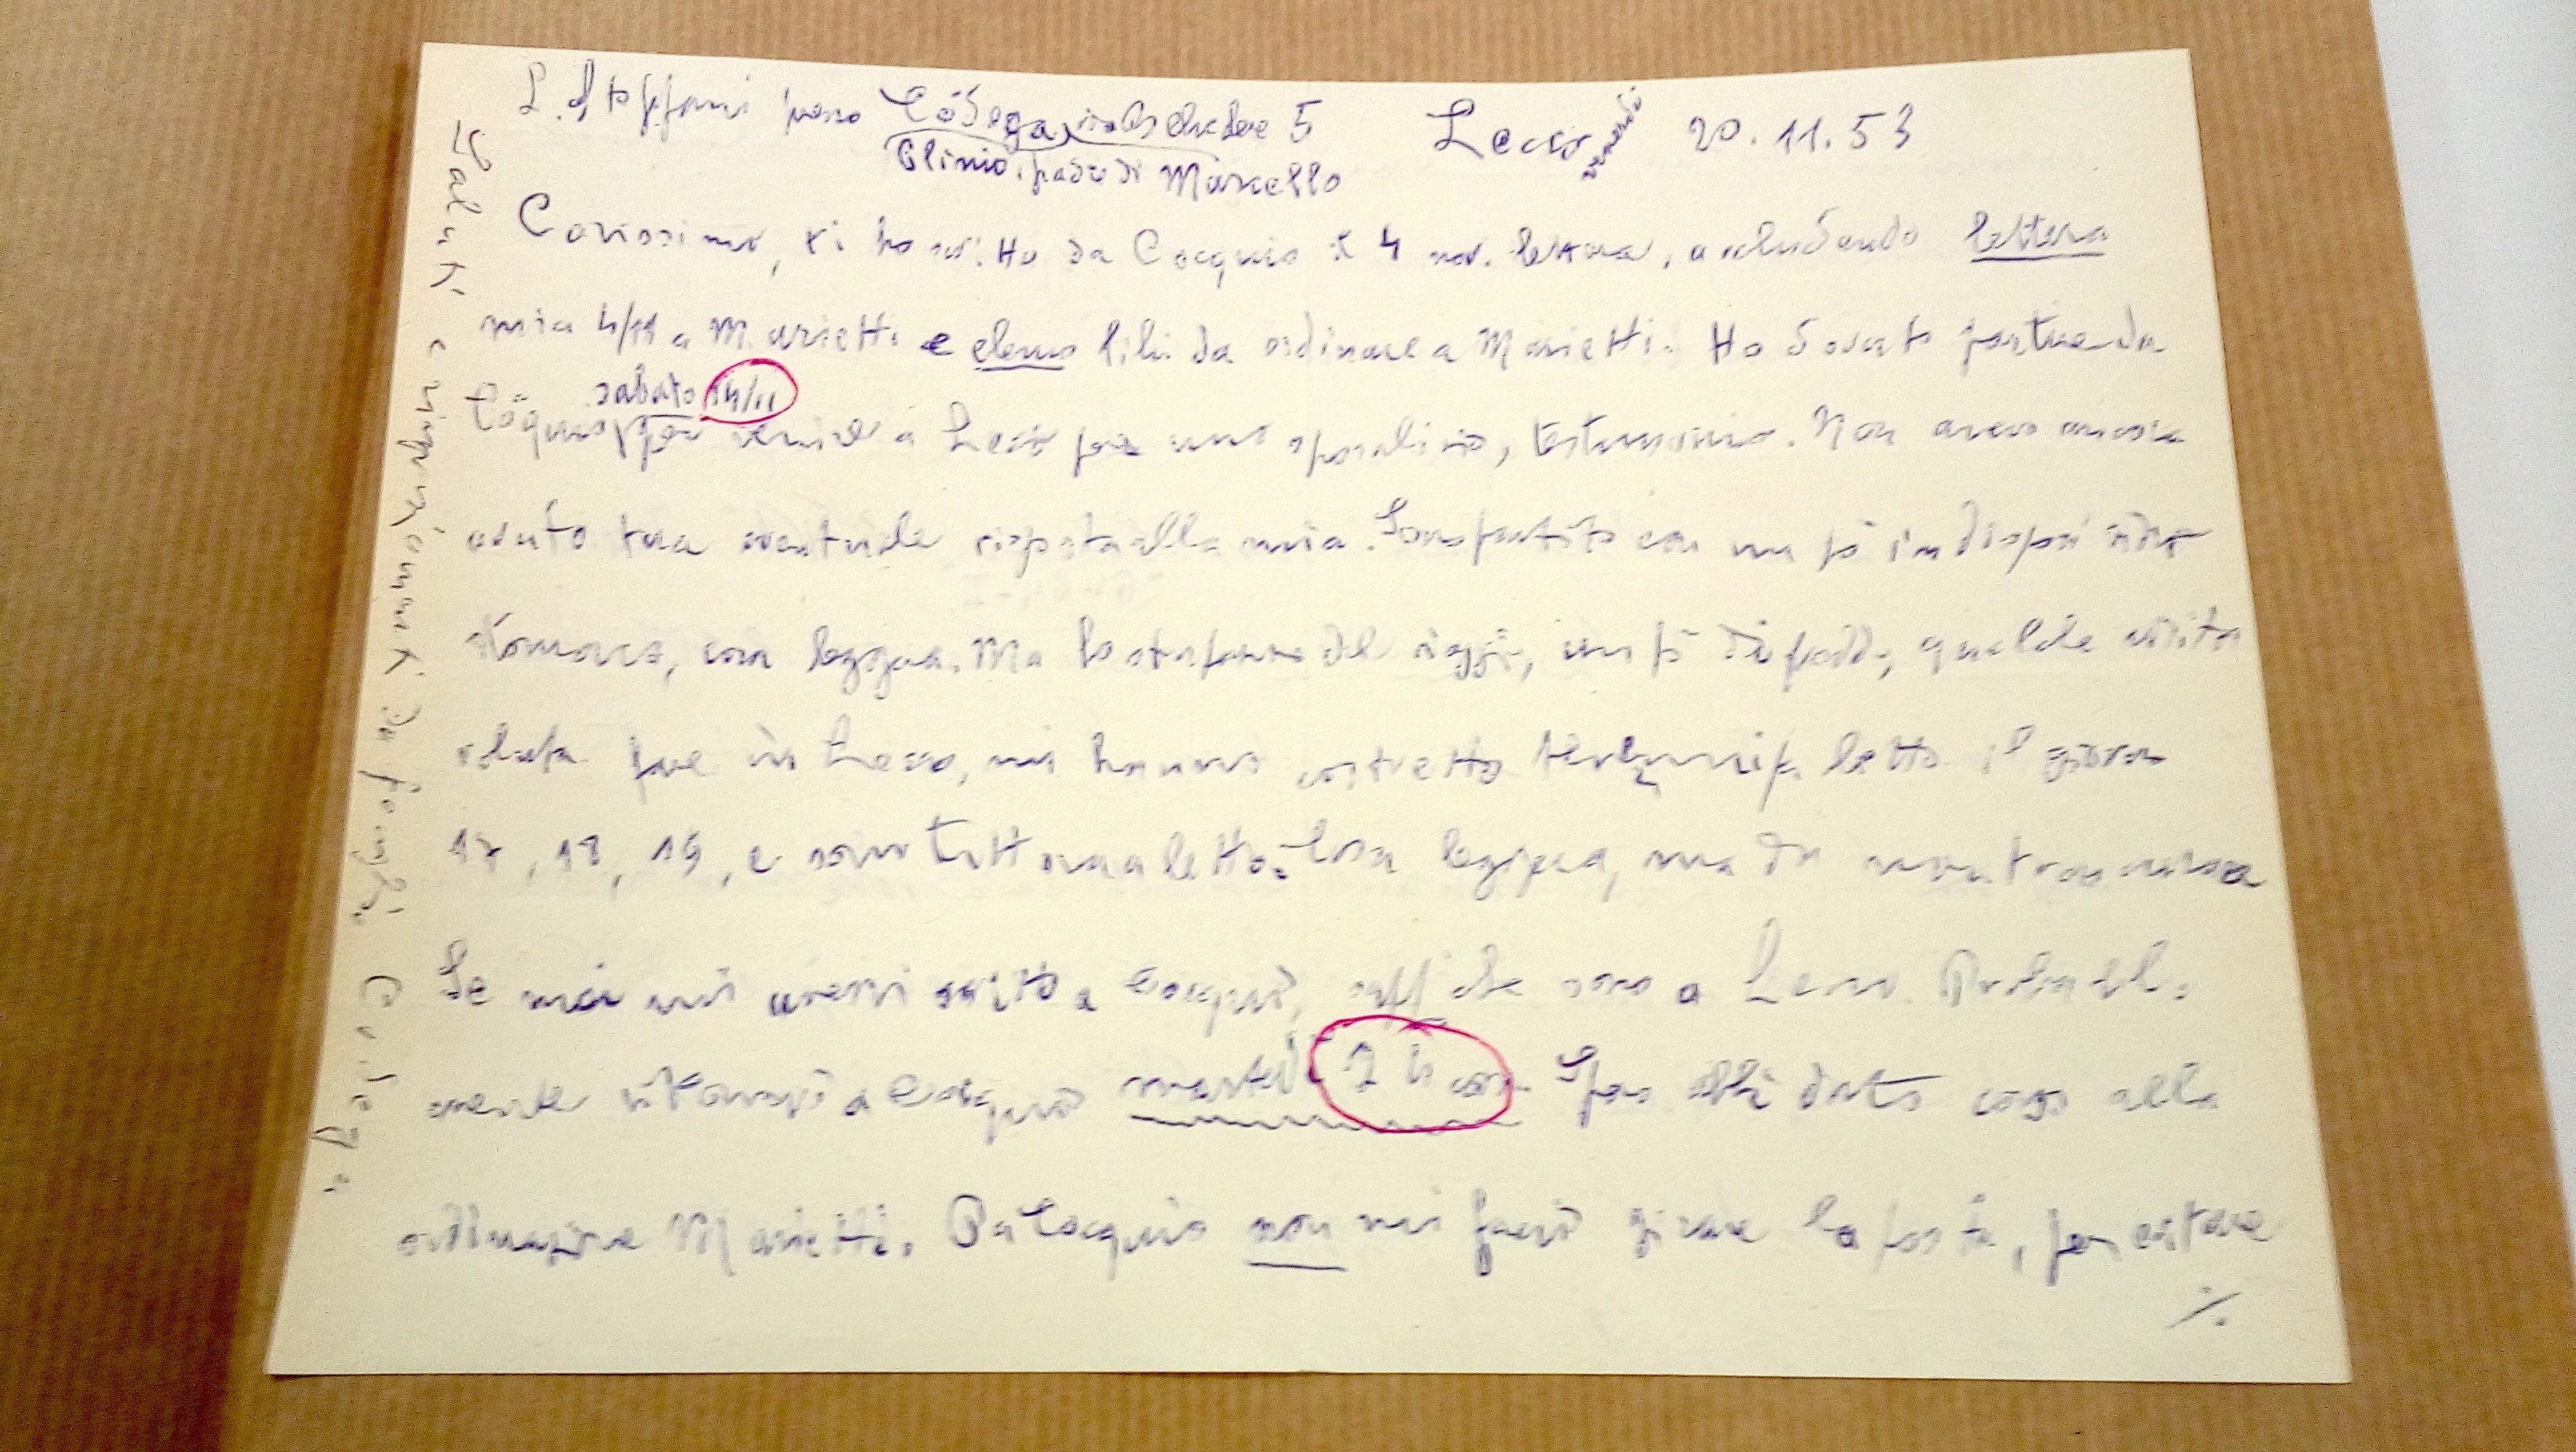 L. Stoppani presso Còdega, Belvedere 5 Lecco venerdì 20.11.53
Plinio, padre di Marcello
Carissimo, ti ho scritto da Cocquio il 4 nov. lettera, accludendo lettera
mia 4/11 a Marietti e elenco libri da ordinare a Marietti. Ho dovuto partire da
sabato 14/11
Còquio per venire a Lecco per uno sposalizio, testimonio. Non avevo ancora
avuto tua eventuale risposta alla mia. Sono partito con un pò indisposizione
stomaco, cosa leggera. Ma lo strapazzo del viaggio, un pò di freddo, qualche visita
pure in Lecco, mi hanno costretto letto il giorno
17, 18, 19, e sono tuttora a letto. Cosa leggera, ma da
Se mai mi avessi scritto a Cocquio, che sono a Lecco. Probabil-
mente ritornerò a Cocquio martedì 24 corr. Spero abbi dato corso alla
ordinazione Marietti. Da Cocquio non mi farò girare la posta, per evitare
./.
Saluti e ringraziamenti da famiglia Còdega